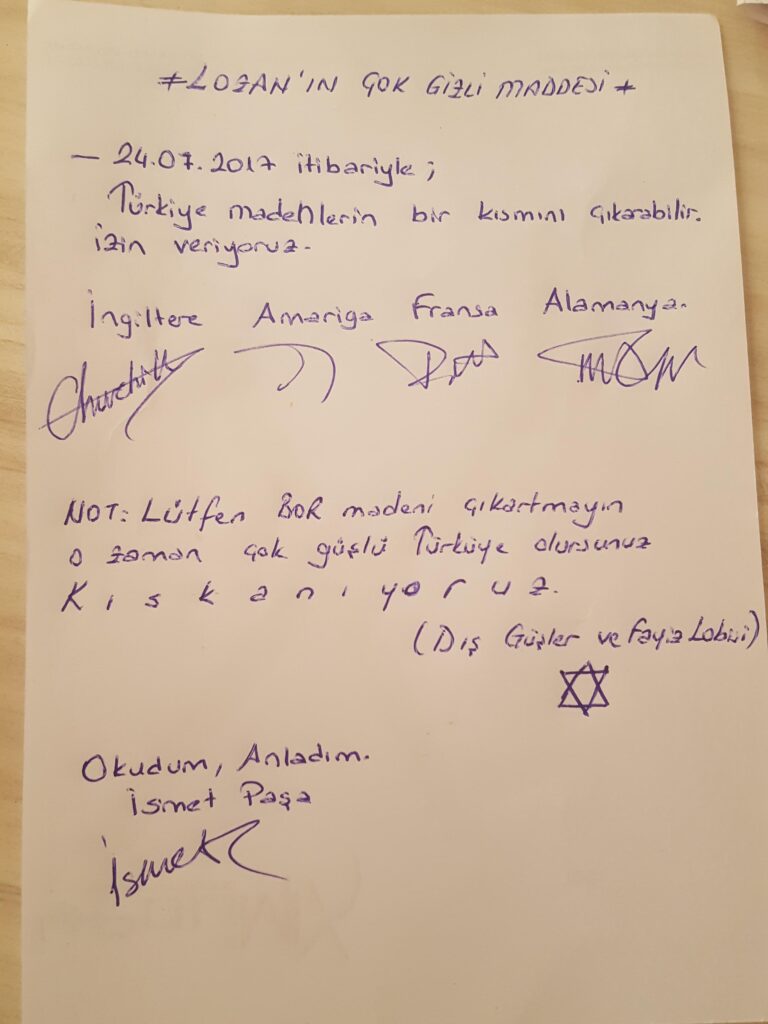 *LOZAN'IN ÇOK GİZLİ MADDESİ*
— 24.07.2017 itibariyle;
Türkiye madenlerin bir kısmını çıkarabilir.
izin veriyoruz.
İngiltere Amariga Fransa Alamanya.
Churchill
NOT: Lütfen BOR madeni çıkartmayın
o zaman çok güşlü Türküye olursunuz
K ı s k a n ı y o r u z.
(Dış Güşler ve Fayiz Lobisi)
Okudum, Anladım.
İsmet Paşa
İsmet